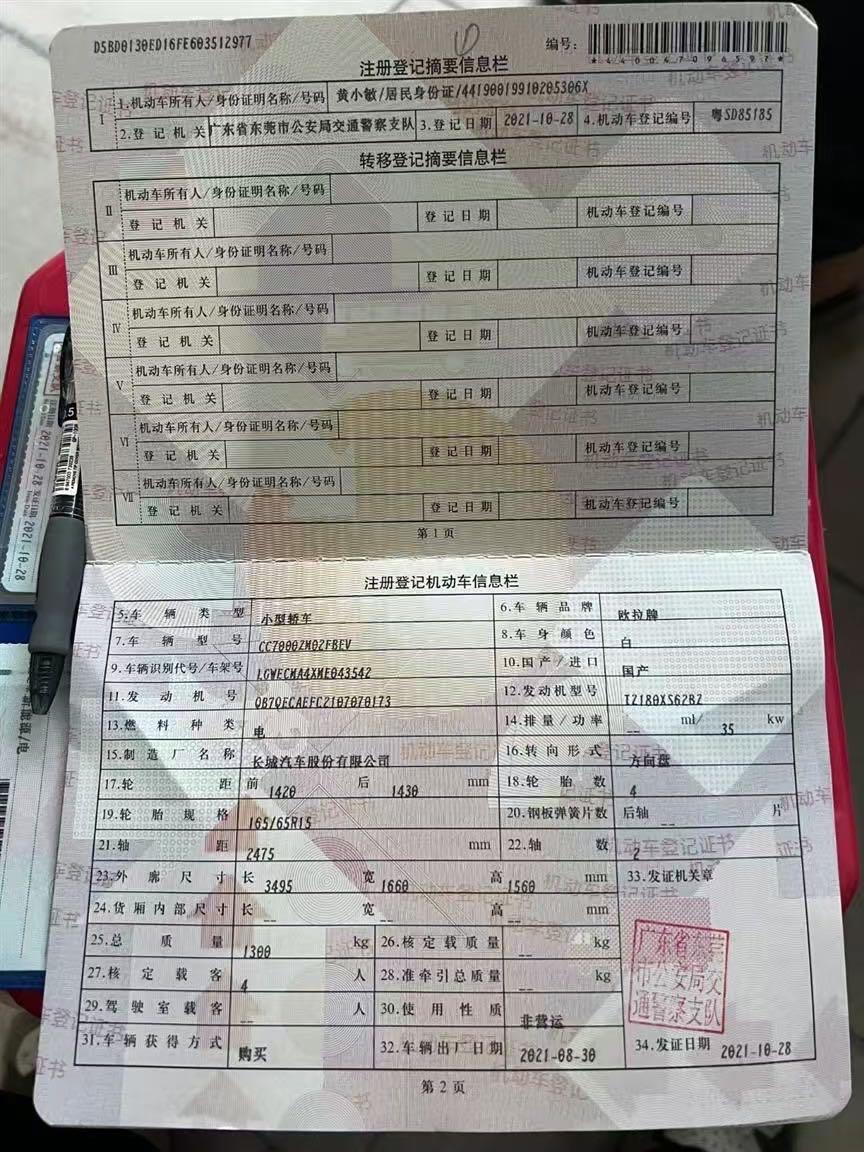 D5BD0130ED16FE603512977
编号:
*440047096597*
注册登记摘要信息栏
I 1.机动车所有人/身份证明名称/号码 黄小敏/居民身份证/44190019910205306X
2.登记机关 广东省东莞市公安局交通警察支队 3.登记日期 2021-10-28 4.机动车登记编号 粤SD85185
转移登记摘要信息栏
II 机动车所有人/身份证明名称/号码
登记机关 登记日期 机动车登记编号
III 机动车所有人/身份证明名称/号码
登记机关 登记日期 机动车登记编号
IV 机动车所有人/身份证明名称/号码
登记机关 登记日期 机动车登记编号
V 机动车所有人/身份证明名称/号码
登记机关 登记日期 机动车登记编号
VI 机动车所有人/身份证明名称/号码
登记机关 登记日期 机动车登记编号
VII 机动车所有人/身份证明名称/号码
登记机关 登记日期 机动车登记编号
第1页
注册登记机动车信息栏
5.车辆类型 小型轿车 6.车辆品牌 欧拉牌
7.车辆型号 CC7000ZM02FBEV 8.车身颜色 白
9.车辆识别代号/车架号 LGWECMA4XME043542 10.国产/进口 国产
11.发动机号 QB7QECAEFC2107070173 12.发动机型号 TZ180XS62BZ
13.燃料种类 电 14.排量/功率 -- ml/ 35 kw
15.制造厂名称 长城汽车股份有限公司 16.转向形式 方向盘
17.轮距 前 1420 后 1430 mm 18.轮胎数 4
19.轮胎规格 165/65R15 20.钢板弹簧片数 后轴 -- 片
21.轴距 2475 mm 22.轴数 2
23.外廓尺寸 长 3495 宽 1660 高 1560 mm 33.发证机关章
24.货厢内部尺寸 长 -- 宽 -- 高 -- mm
25.总质量 1300 kg 26.核定载质量 -- kg
27.核定载客 4 人 28.准牵引总质量 -- kg
29.驾驶室载客 -- 人 30.使用性质 非营运
31.车辆获得方式 购买 32.车辆出厂日期 2021-08-30 34.发证日期 2021-10-28
广东省东莞
市公安局交
通警察支队
第2页
2021-10-28 发证日期 2021-10-28